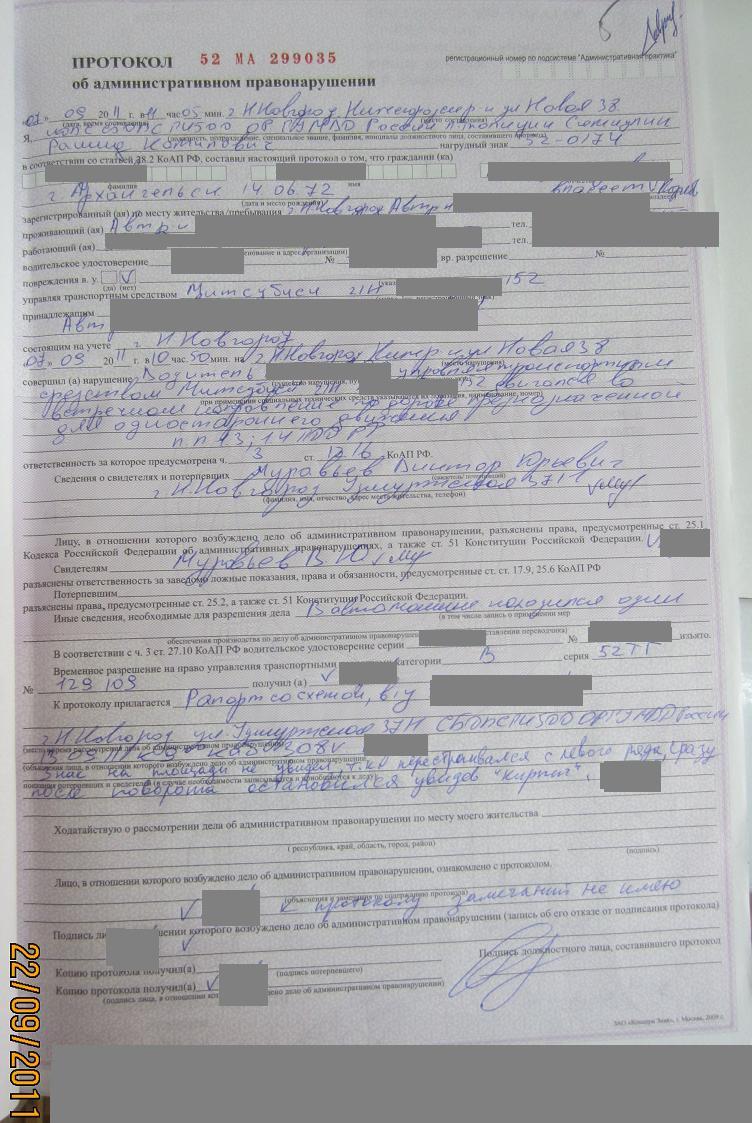 ПРОТОКОЛ 52 МА 299035
регистрационный номер по подсистеме "Административная практика"
об административном правонарушении
07 » 09 2011 г. в 11 час 05 мин. г Н Новгород, ул Новая 38
(дата, время составления) (место составления)
Я,
(должность, подразделение, специальное звание, фамилия, инициалы должностного лица, составившего протокол)
нагрудный знак 52-0174
в соответствии со статьей 28.2 КоАП РФ, составил настоящий протокол о том, что гражданин (ка)
фамилия имя
г. Архангельск 14.06.72 владеет
(дата и место рождения)
зарегистрированный (ая) по месту жительства /пребывания г Н Новгород Автр н
проживающий (ая) Автр. н тел.
работающий (ая) тел.
водительское удостоверение № вр. разрешение №
повреждения в. у. V
(да) (нет)
управляя транспортным средством Митсубиси 152
принадлежащим
Авт
состоящим на учете г. Н Новгород
07 » 09 2011 г. в 10 час. 50 мин. на г Н Новгород ул Новая 38
совершил (а) нарушение Водитель управляя транспортным
средством Митсубиси 52 двигался во
при применении специальных технических средств указываются их
встречном направлении по дороге предназначенной
для одностороннего движения
п.п 1.3; 1.4 ПДД РФ
ответственность за которое предусмотрена ч. 3 ст. 12.16 КоАП РФ.
Сведения о свидетелях и потерпевших Муравьев Виктор Юрьевич
г. Н. Новгород Удмуртская
(фамилия, имя, отчество, адрес места жительства, телефон)
Лицу, в отношении которого возбуждено дело об административном правонарушении, разъяснены права, предусмотренные ст. 25.1
Кодекса Российской Федерации об административных правонарушениях, а также ст. 51 Конституции Российской Федерации. V
Свидетелям Муравьев В Ю
разъяснены ответственность за заведомо ложные показания, права и обязанности, предусмотренные ст. ст. 17.9, 25.6 КоАП РФ
Потерпевшим
разъяснены права, предусмотренные ст. 25.2, а также ст. 51 Конституции Российской Федерации.
Иные сведения, необходимые для разрешения дела В автомашине находился один
(в том числе запись о принятии мер
обеспечения производства по делу об административном правонарушении
В соответствии с ч. 3 ст. 27.10 КоАП РФ водительское удостоверение серии № изъято.
Временное разрешение на право управления транспортными категории В серия 52ТТ
№ 129 109 получил (а) V
К протоколу прилагается Рапорт со схемой, в/у
г. Н. Новгород ул. Удмуртская 37Н России
(место, время рассмотрения дела об административном правонарушении)
(объяснения лица, в отношении которого возбуждено дело об административном правонарушении
Знак на площади не увидел, т.к. перестраивался с левого ряда, сразу
после поворота остановился увидев "кирпич".
Ходатайствую о рассмотрении дела об административном правонарушении по месту моего жительства
( республика, край, область, город, район) (подпись)
Лицо, в отношении которого возбуждено дело об административном правонарушении, ознакомлено с протоколом.
V к протоколу замечаний не имею
(объяснения и замечания по содержанию протокола)
Подпись в отношении которого возбуждено дело об административном правонарушении (запись об его отказе от подписания протокола)
V
Подпись должностного лица, составившего протокол
Копию протокола получил(а)
(подпись потерпевшего)
Копию протокола получил(а) V
(подпись лица, в отношении дело об административном правонарушении)
ЗАО «Концерн Знак», г. Москва, 2009 г.
22/09/2011